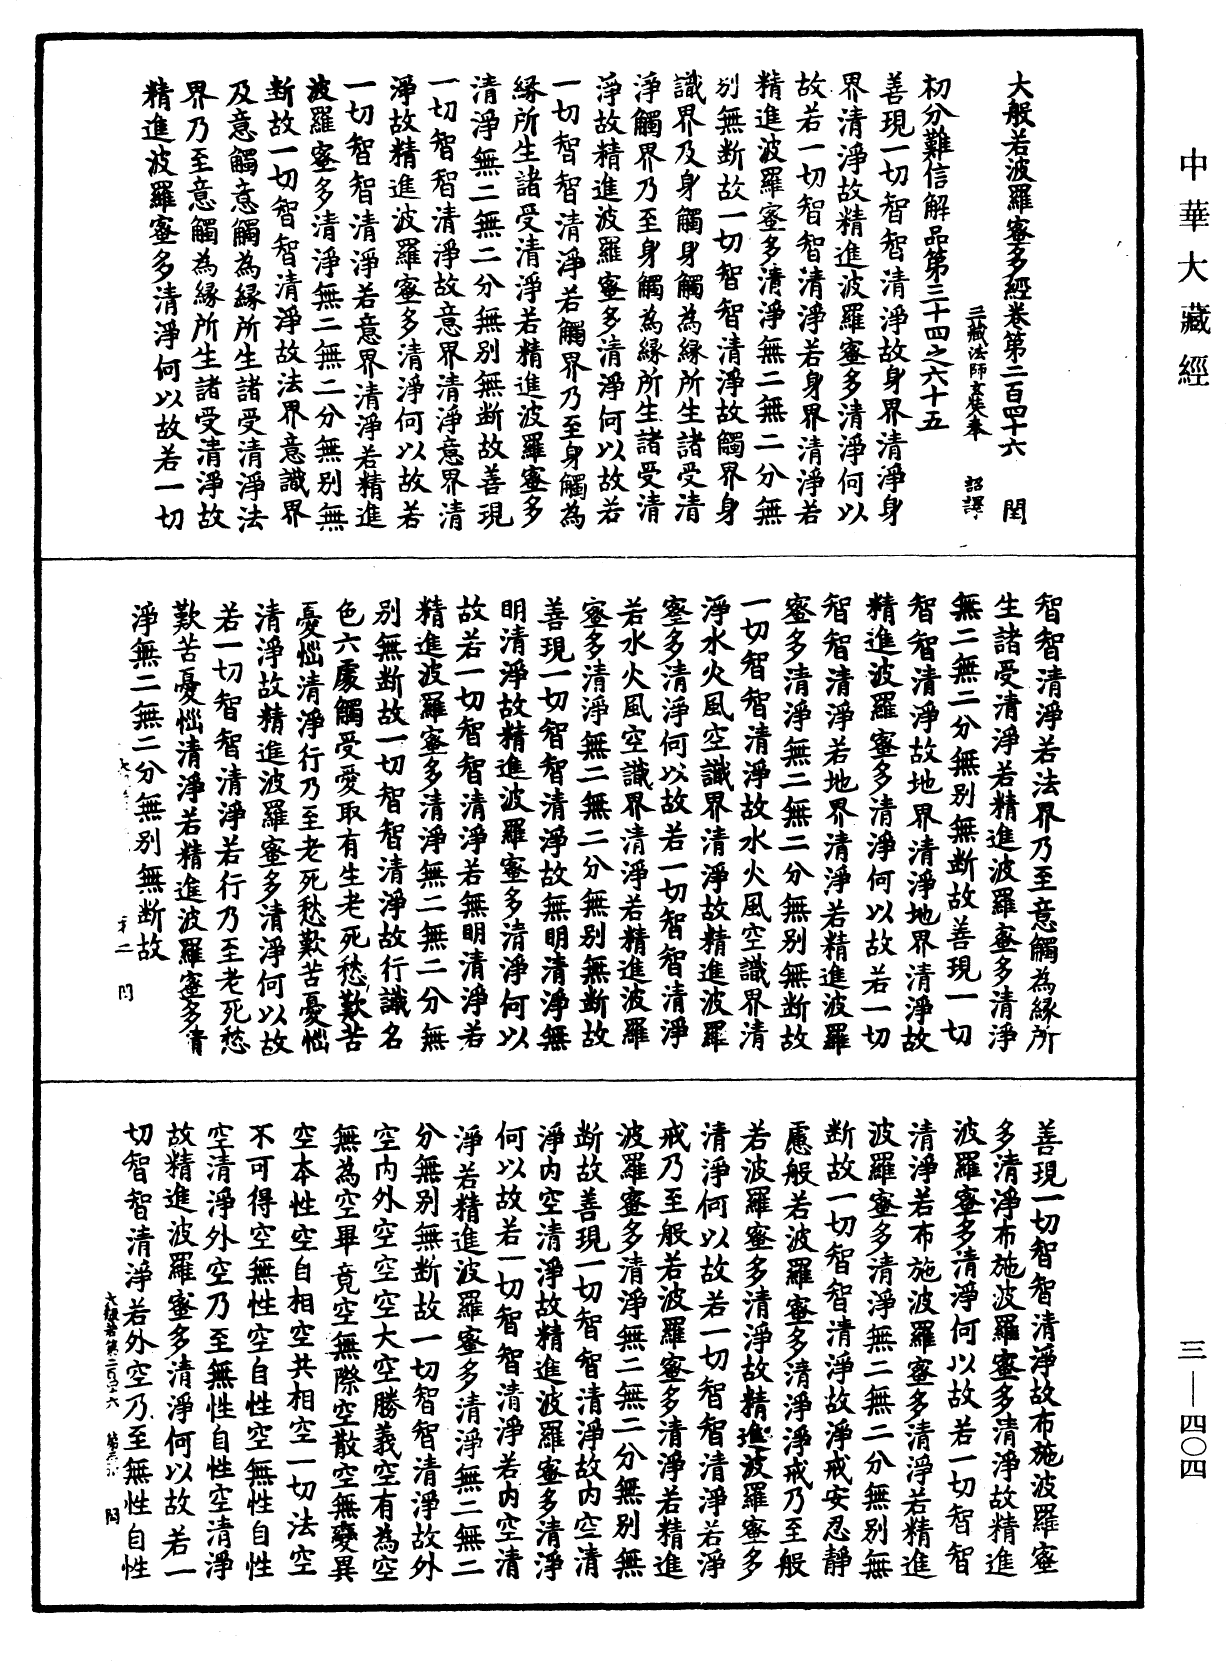 中華大藏經
大般若波羅蜜多經卷第二百四十六　閏
三藏法師玄奘奉　詔譯
初分難信解品第三十四之六十五
善現一切智智清淨故身界清淨身
界清淨故精進波羅蜜多清淨何以
故若一切智智清淨若身界清淨若
精進波羅蜜多清淨無二無二分無
別無斷故一切智智清淨故觸界身
識界及身觸身觸為緣所生諸受清
淨觸界乃至身觸為緣所生諸受清
淨故精進波羅蜜多清淨何以故若
一切智智清淨若觸界乃至身觸為
緣所生諸受清淨若精進波羅蜜多
清淨無二無二分無別無斷故善現
一切智智清淨故意界清淨意界清
淨故精進波羅蜜多清淨何以故若
一切智智清淨若意界清淨若精進
波羅蜜多清淨無二無二分無別無
斷故一切智智清淨故法界意識界
及意觸意觸為緣所生諸受清淨法
界乃至意觸為緣所生諸受清淨故
精進波羅蜜多清淨何以故若一切
智智清淨若法界乃至意觸為緣所
生諸受清淨若精進波羅蜜多清淨
無二無二分無別無斷故善現一切
智智清淨故地界清淨地界清淨故
精進波羅蜜多清淨何以故若一切
智智清淨若地界清淨若精進波羅
蜜多清淨無二無二分無別無斷故
一切智智清淨故水火風空識界清
淨水火風空識界清淨故精進波羅
蜜多清淨何以故若一切智智清淨
若水火風空識界清淨若精進波羅
蜜多清淨無二無二分無別無斷故
善現一切智智清淨故無明清淨無
明清淨故精進波羅蜜多清淨何以
故若一切智智清淨若無明清淨若
精進波羅蜜多清淨無二無二分無
別無斷故一切智智清淨故行識名
色六處觸受愛取有生老死愁歎苦
憂惱清淨行乃至老死愁歎苦憂惱
清淨故精進波羅蜜多清淨何以故
若一切智智清淨若行乃至老死愁
歎苦憂惱清淨若精進波羅蜜多清
淨無二無二分無別無斷故
善現一切智智清淨故布施波羅蜜
多清淨布施波羅蜜多清淨故精進
波羅蜜多清淨何以故若一切智智
清淨若布施波羅蜜多清淨若精進
波羅蜜多清淨無二無二分無別無
斷故一切智智清淨故淨戒安忍靜
慮般若波羅蜜多清淨淨戒乃至般
若波羅蜜多清淨故精進波羅蜜多
清淨何以故若一切智智清淨若淨
戒乃至般若波羅蜜多清淨若精進
波羅蜜多清淨無二無二分無別無
斷故善現一切智智清淨故內空清
淨內空清淨故精進波羅蜜多清淨
何以故若一切智智清淨若內空清
淨若精進波羅蜜多清淨無二無二
分無別無斷故一切智智清淨故外
空內外空空空大空勝義空有為空
無為空畢竟空無際空散空無變異
空本性空自相空共相空一切法空
不可得空無性空自性空無性自性
空清淨外空乃至無性自性空清淨
故精進波羅蜜多清淨何以故若一
切智智清淨若外空乃至無性自性
大般若第二百四十六　閏
三—四〇四